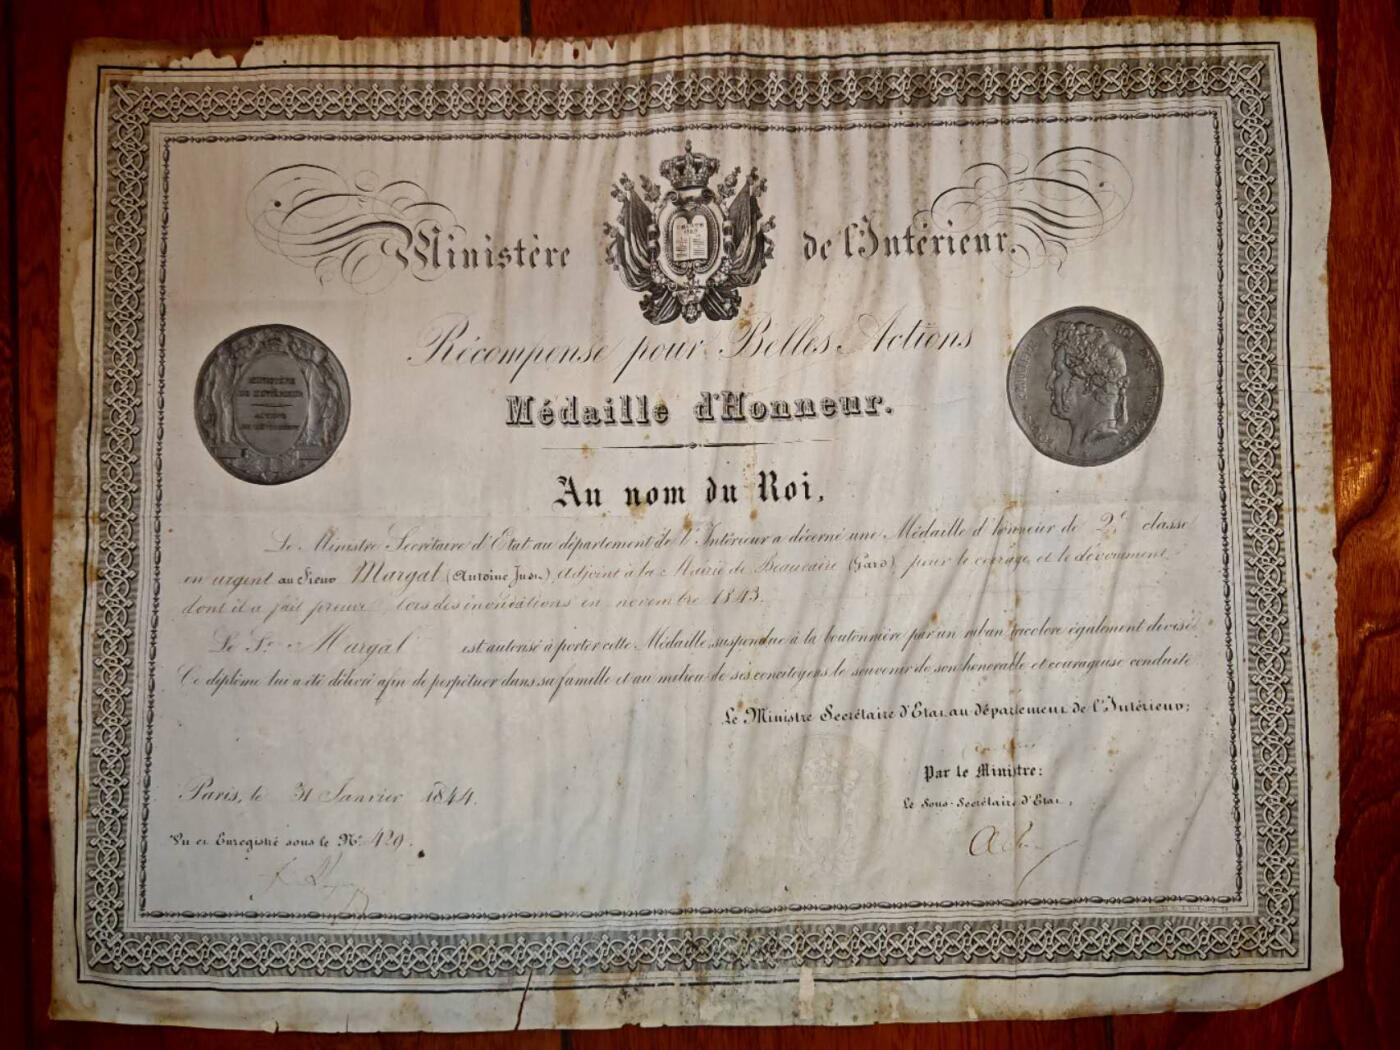 Ministère de l'Intérieur.
Récompense pour Belles Actions
MINISTÈRE
DE L'INTÉRIEUR
ACTIONS
DE DÉVOUEMENT
Médaille d'Honneur.
Au nom du Roi,
Le Ministre Secrétaire d'Etat au département de l'Intérieur a décerné une Médaille d'honneur de 2e classe
en argent au Sieur Margal (Antoine Just), Adjoint à la Mairie de Beaucaire (Gard), pour le courage et le dévoument
dont il a fait preuve lors des inondations en novembre 1843.
Le Sr. Margal est autorisé à porter cette Médaille suspendue à la boutonnière par un ruban tricolore également divisé
Ce diplôme lui a été délivré afin de perpétuer dans sa famille et au milieu de ses concitoyens le souvenir de son honorable et courageuse conduite
Le Ministre Secrétaire d'Etat au département de l'Intérieur;
Par le Ministre:
Le Sous-Secrétaire d'Etat,
Paris, le 31 Janvier 1844.
Vu et Enregistré sous le No. 429.